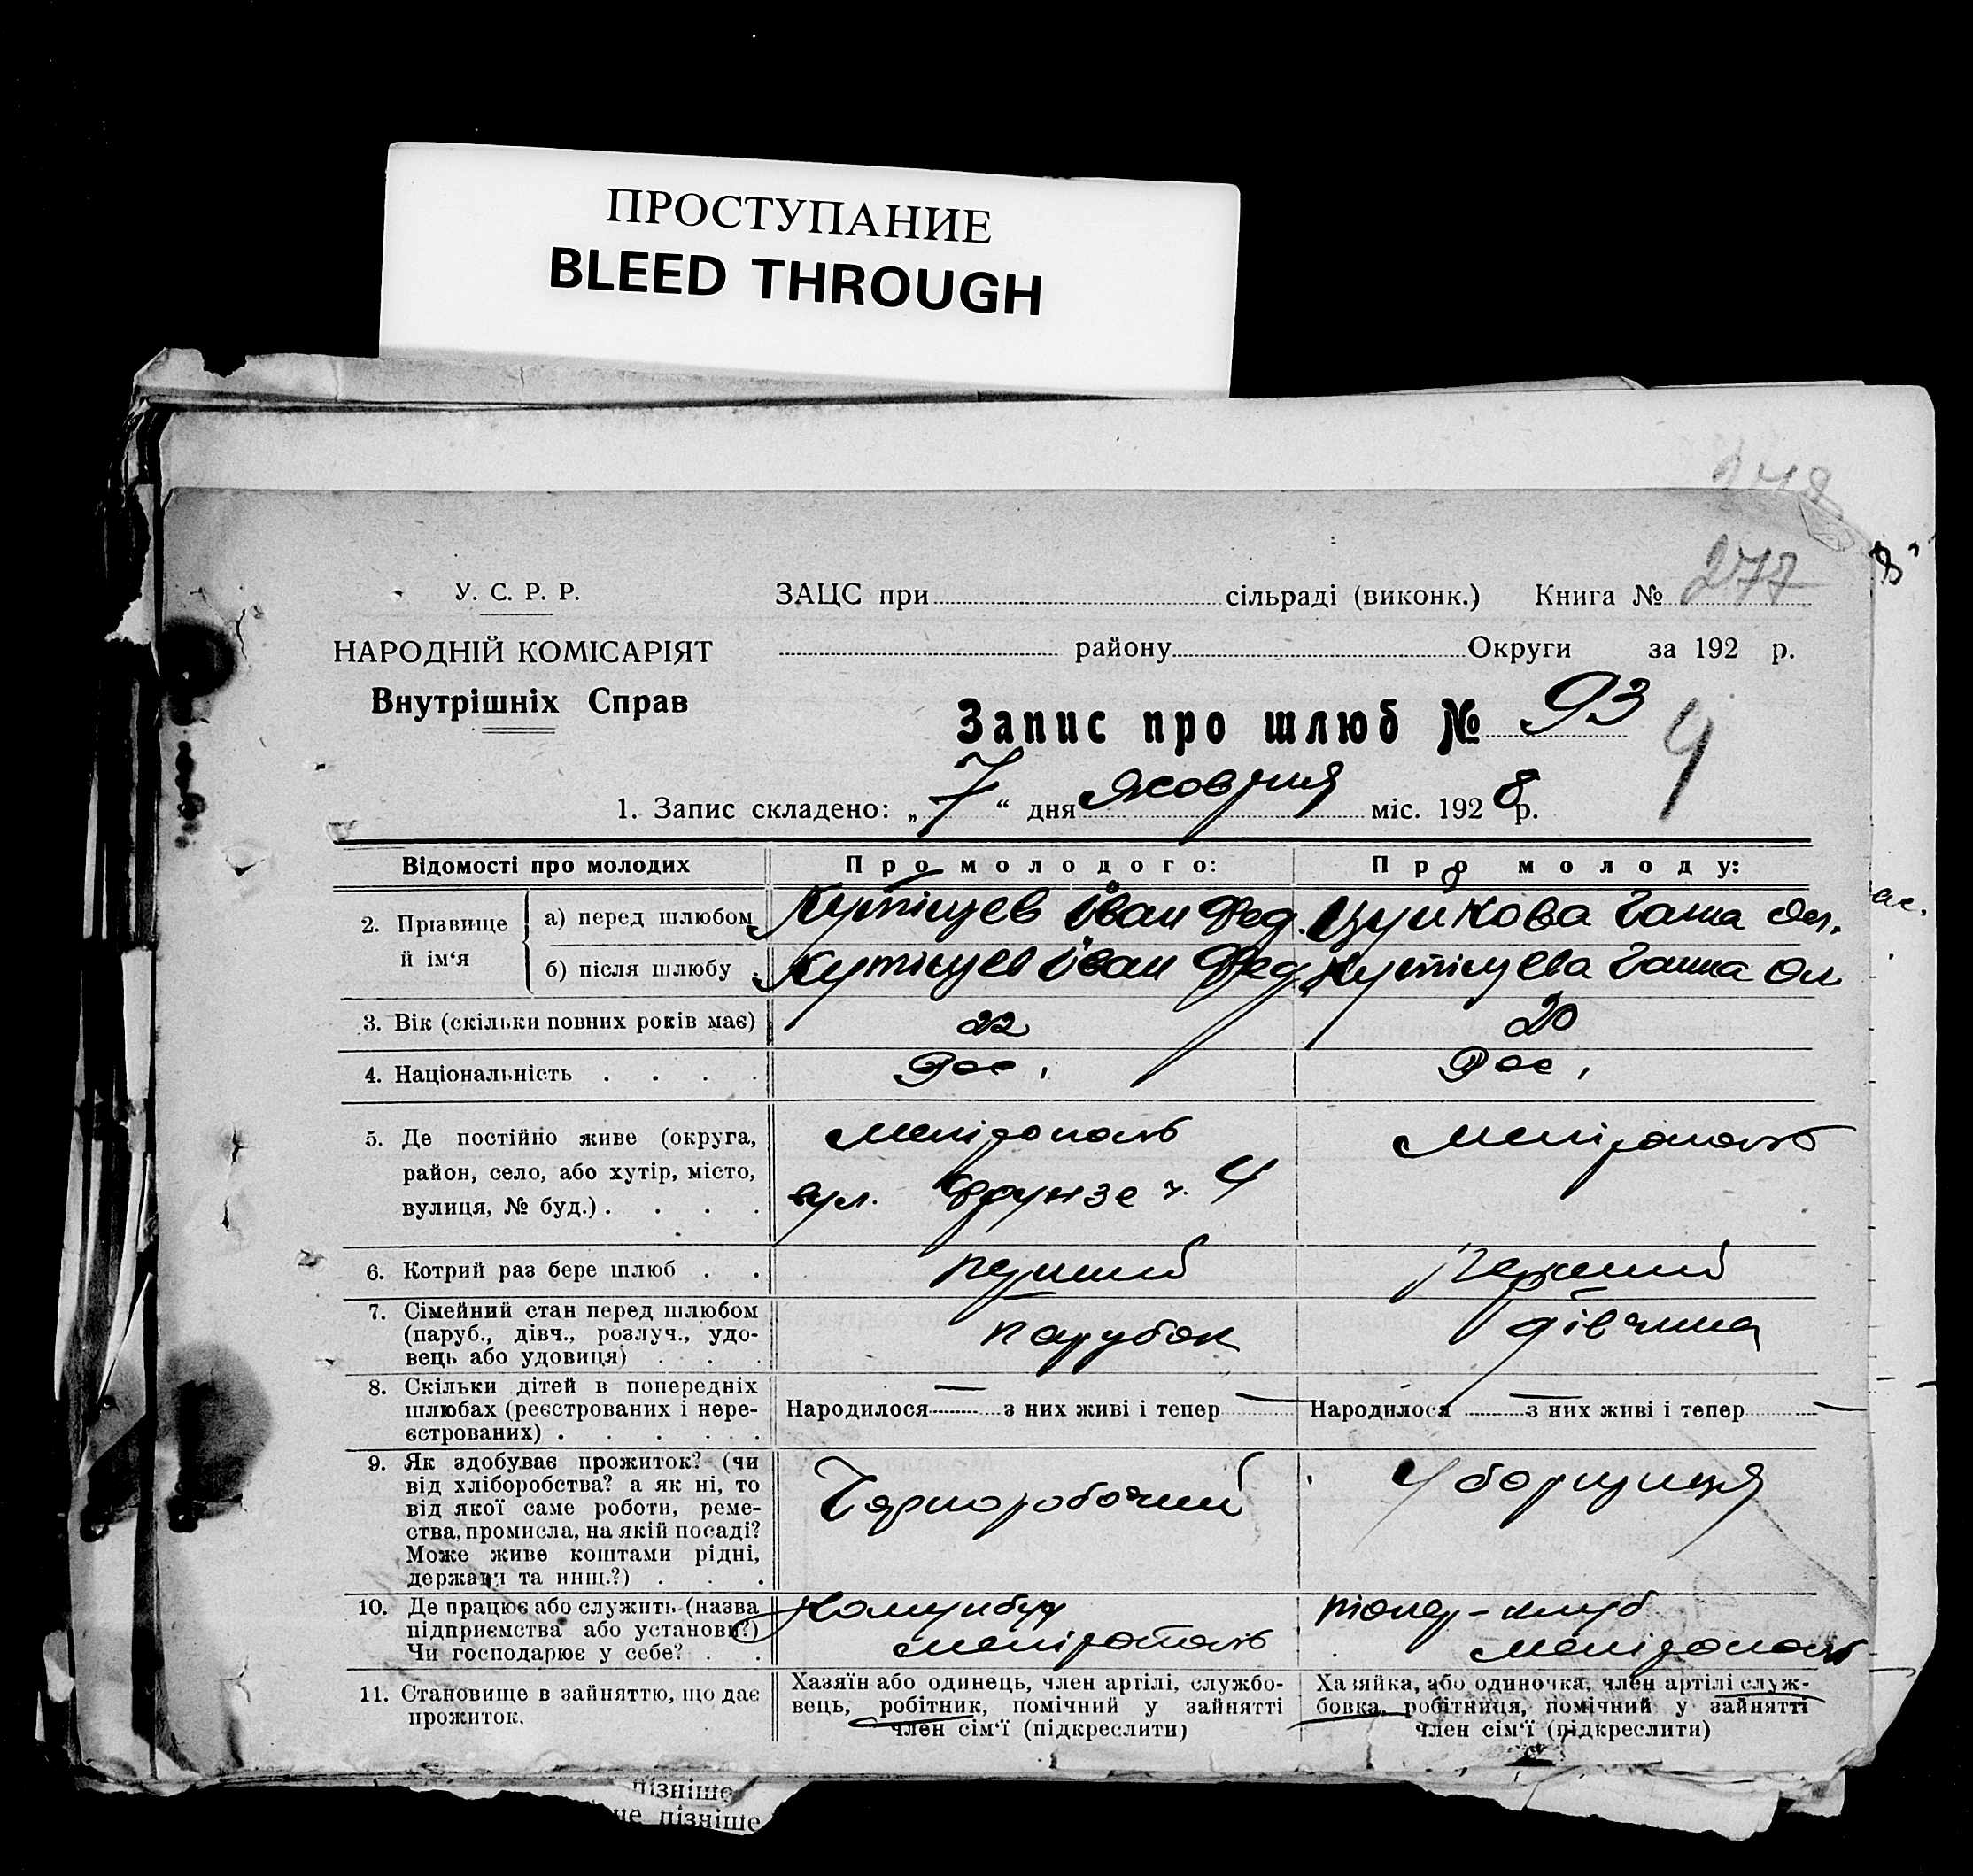 ПРОСТУПАНИЕ
BLEED THROUGH
248
277
У. С. Р. Р.
ЗАЦС при сільраді (виконк.) Книга №
НАРОДНІЙ КОМІСАРІЯТ
району Округи за 192 р.
Внутрішніх Справ
Запис про шлюб № 93
4
1. Запис складено: „7“ дня Жовтня міс. 1928 р.
Відомості про молодих
Про молодого:
Про молоду:
2. Прізвище й ім‘я
а) перед шлюбом
Іван Фед.
Ганна
б) після шлюбу
Іван Фед.
Ганна Ол.
3. Вік (скільки повних років має)
22
20
4. Національність . . . .
Рос.
Рос.
5. Де постійно живе (округа,
район, село, або хутір, місто,
вулиця, № буд.) . . . .
Мелітополь
вул. Фрунзе ч. 4
Мелітополь
6. Котрий раз бере шлюб . .
перший
перший
7. Сімейний стан перед шлюбом
(паруб., дівч., розлуч., удо-
вець або удовиця) . . .
парубок
дівчина
8. Скільки дітей в попередніх
шлюбах (реєстрованих і нере-
єстрованих) . . . . . .
Народилося — з них живі і тепер —
Народилося — з них живі і тепер —
9. Як здобуває прожиток? (чи
від хліборобства? а як ні, то
від якої саме роботи, реме-
ства, промисла, на якій посаді?
Може живе коштами рідні,
держави та инш.?) . . .
Чорноробочий
Уборщиця
10. Де працює або служить (назва
підприємства або установи?)
Чи господарює у себе? . .
Мелітополь
клуб
Мелітополь
11. Становище в зайняттю, що дає
прожиток.
Хазяїн або одинець, член артілі, службо-
вець, робітник, помічний у зайнятті
член сім‘ї (підкреслити)
Хазяйка, або одиночка, член артілі служ-
бовка, робітниця, помічний у зайнятті
член сім‘ї (підкреслити)
пізніше
не пізніше